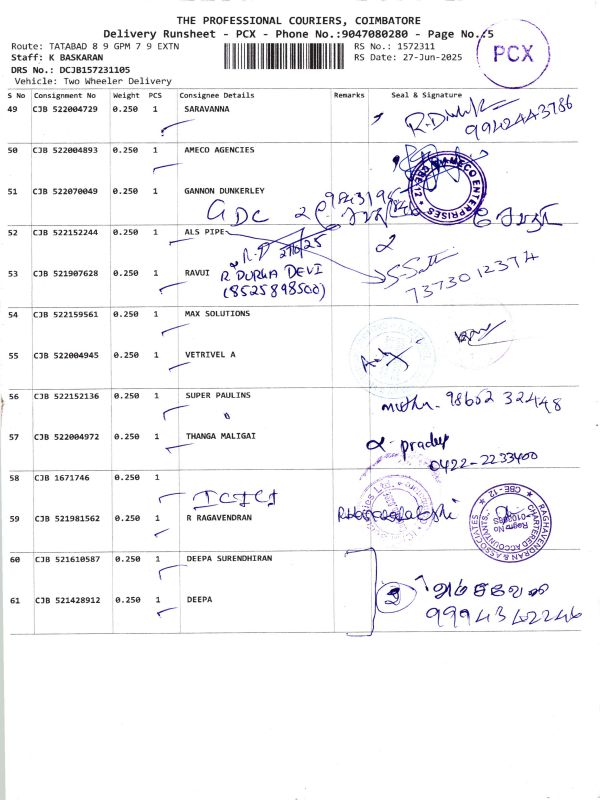 THE PROFESSIONAL COURIERS, COIMBATORE
Delivery Runsheet - PCX - Phone No.:9047080280 - Page No.:5
Route: TATABAD 8 9 GPM 7 9 EXTN
RS No.: 1572311
Staff: K BASKARAN
RS Date: 27-Jun-2025
DRS No.: DCJB157231105
Vehicle: Two Wheeler Delivery
PCX
S No Consignment No Weight PCS Consignee Details Remarks Seal & Signature
49 CJB 522004729 0.250 1 SARAVANNA
9942443786
50 CJB 522004893 0.250 1 AMECO AGENCIES
AMECO ENTERPRISES CBE-12
51 CJB 522070049 0.250 1 GANNON DUNKERLEY
GDC
52 CJB 522152244 0.250 1 ALS PIPE
53 CJB 521907628 0.250 1 RAVUI
R DURGA DEVI
(8525898500)
7373012374
54 CJB 522159561 0.250 1 MAX SOLUTIONS
55 CJB 522004945 0.250 1 VETRIVEL A
56 CJB 522152136 0.250 1 SUPER PAULINS
98652 32448
57 CJB 522004972 0.250 1 THANGA MALIGAI
pradeep
0422-2233400
58 CJB 1671746 0.250 1
ICICI
59 CJB 521981562 0.250 1 R RAGAVENDRAN
RAGHAVENDRAN & ASSOCIATES CHARTERED ACCOUNTANTS CBE-12
60 CJB 521610587 0.250 1 DEEPA SURENDHIRAN
61 CJB 521428912 0.250 1 DEEPA
2
9994342246